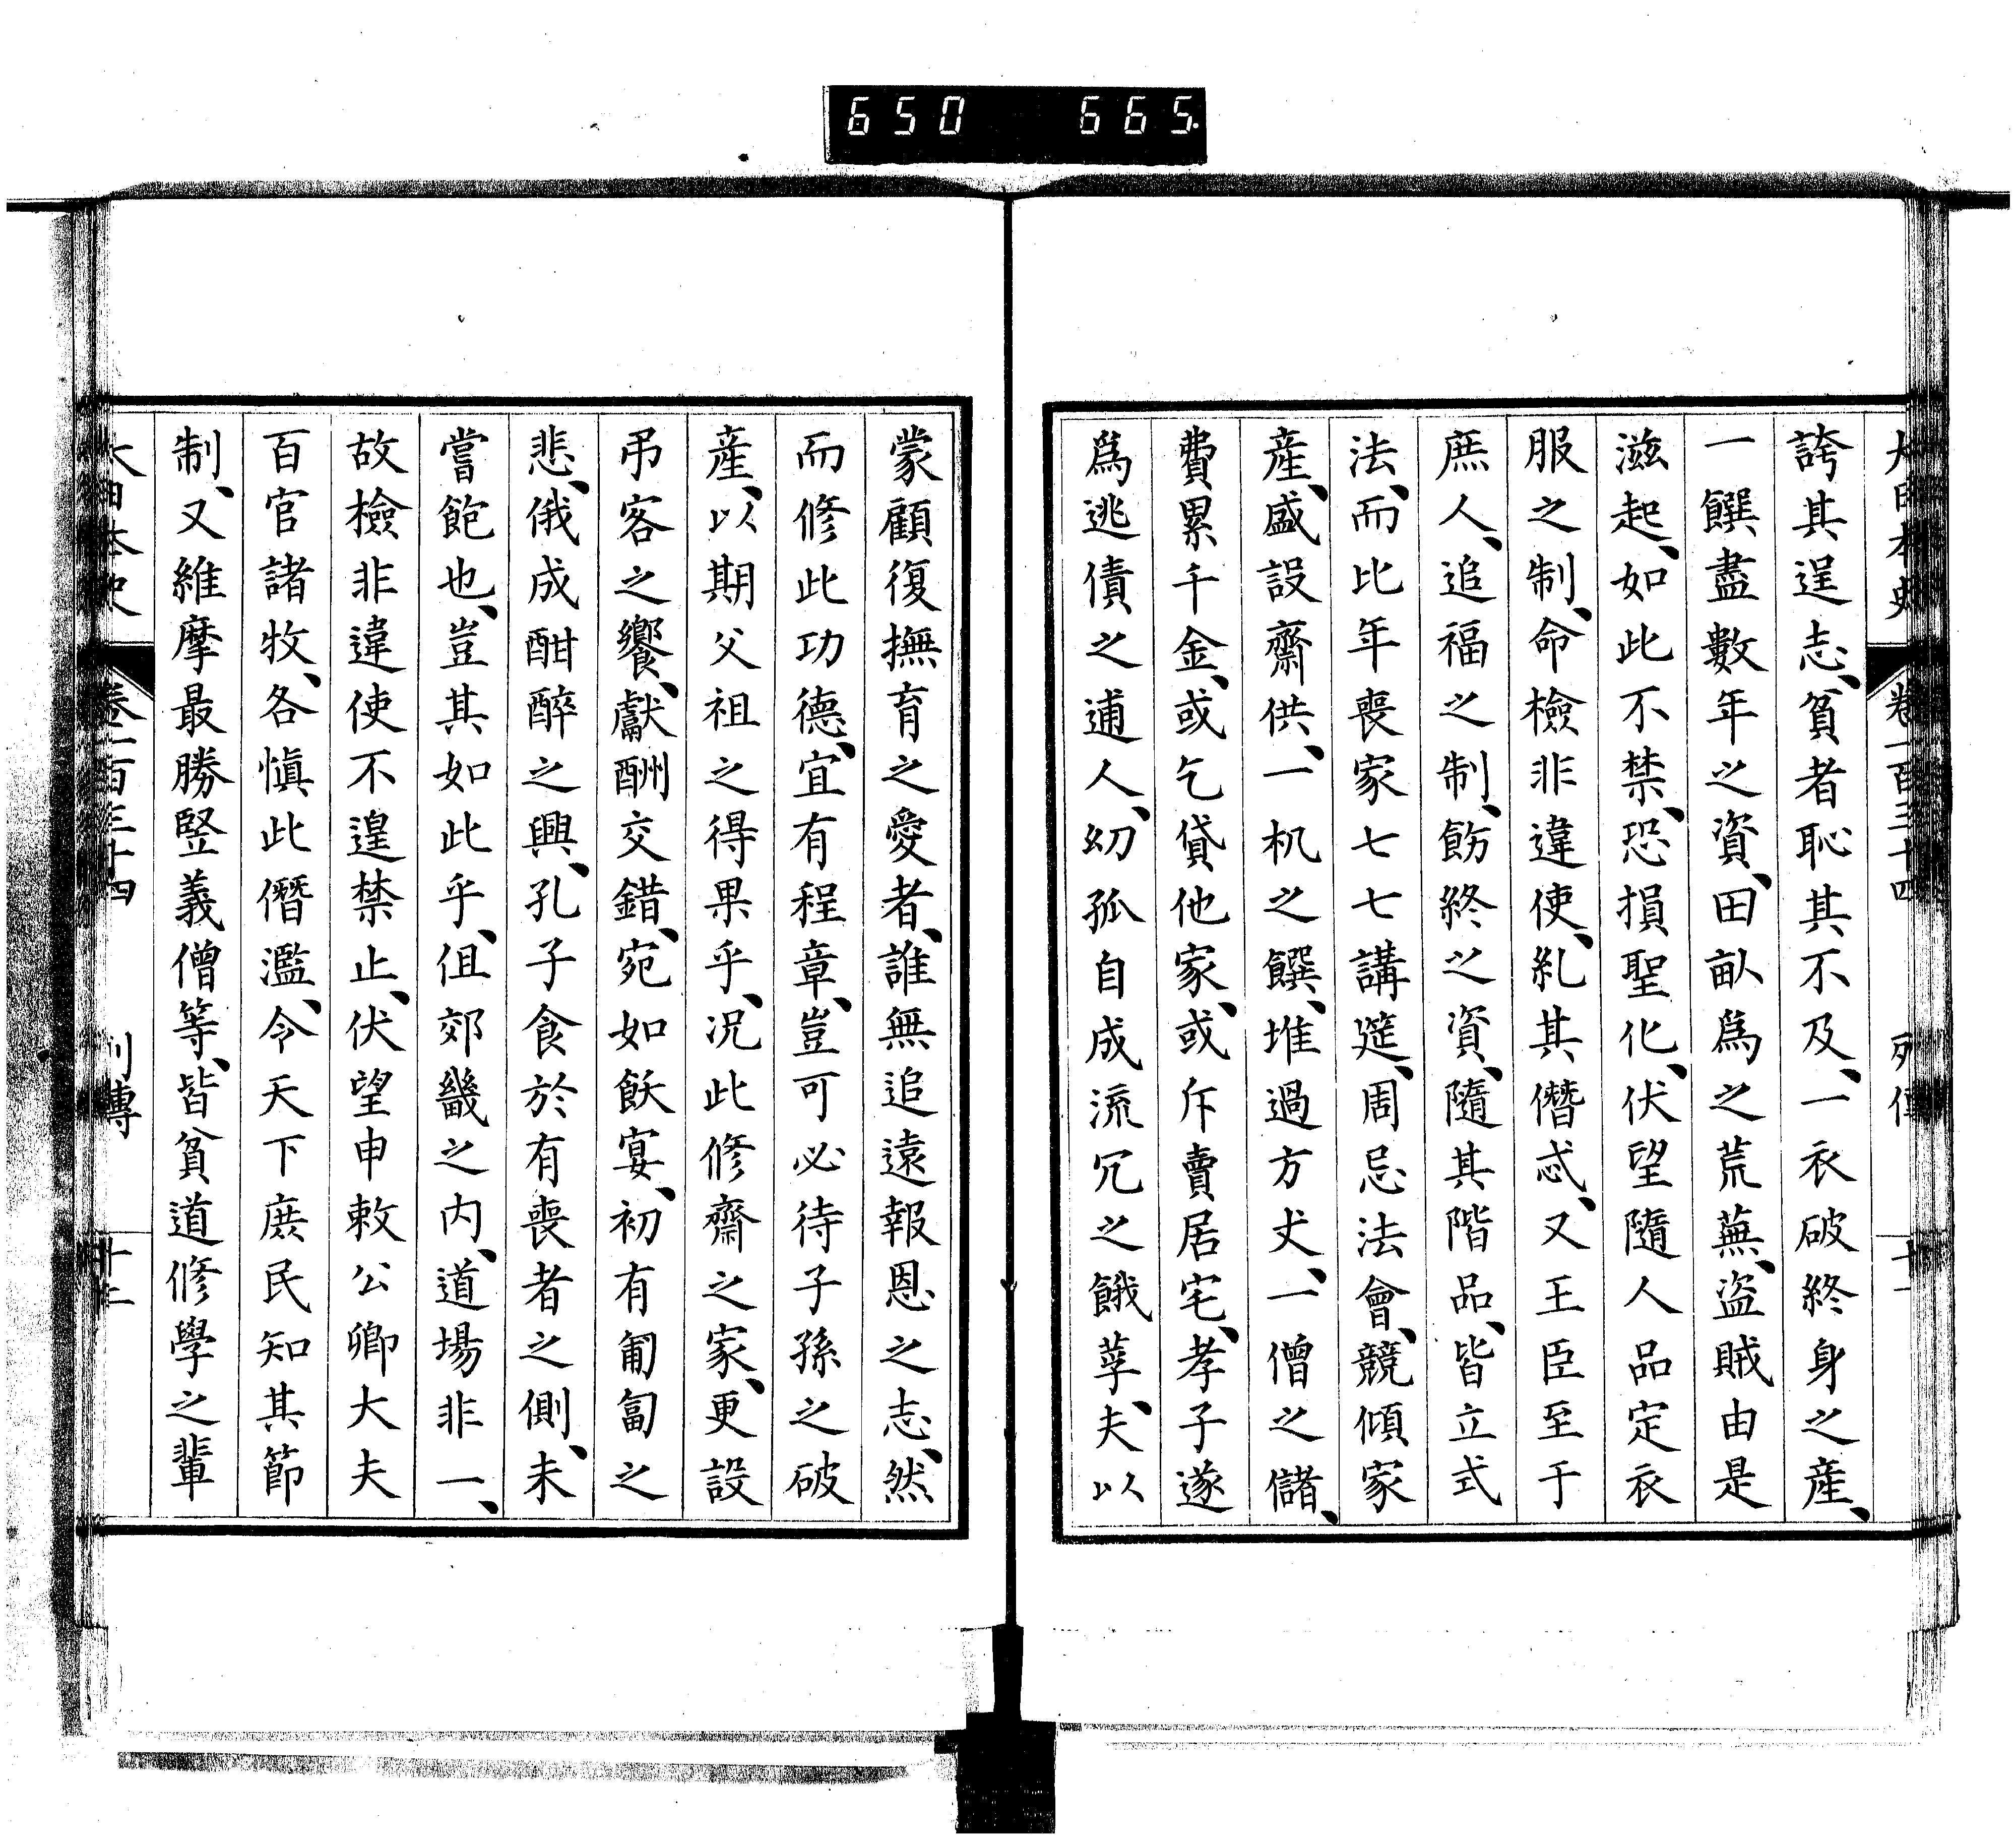 650 665
大日本史 卷一百三十四 列傳 十一
誇其逞志、貧者恥其不及、一衣破終身之產、
一饌盡數年之資、田畝爲之荒蕪、盜賊由是
滋起、如此不禁、恐損聖化、伏望隨人品定衣
服之制、命檢非違使、糺其僭忒、又王臣至于
庶人、追福之制、飭終之資、隨其階品、皆立式
法、而比年喪家七七講筵、周忌法會、競傾家
產、盛設齋供、一机之饌、堆過方丈、一僧之儲、
費累千金、或乞貸他家、或斥賣居宅、孝子遂
爲逃債之逋人、幼孤自成流冗之餓莩、夫以
蒙顧復撫育之愛者、誰無追遠報恩之志、然
而修此功德、宜有程章、豈可必待子孫之破
產、以期父祖之得果乎、況此修齋之家、更設
弔客之饗、獻酬交錯、宛如飫宴、初有匍匐之
悲、俄成酣醉之興、孔子食於有喪者之側、未
嘗飽也、豈其如此乎、伹郊畿之内、道場非一、
故檢非違使不遑禁止、伏望申敕公卿大夫
百官諸牧、各愼此僭濫、令天下庶民知其節
制、又維摩最勝竪義僧等、皆貧道修學之輩
大日本史 卷一百三十四 列傳 十二